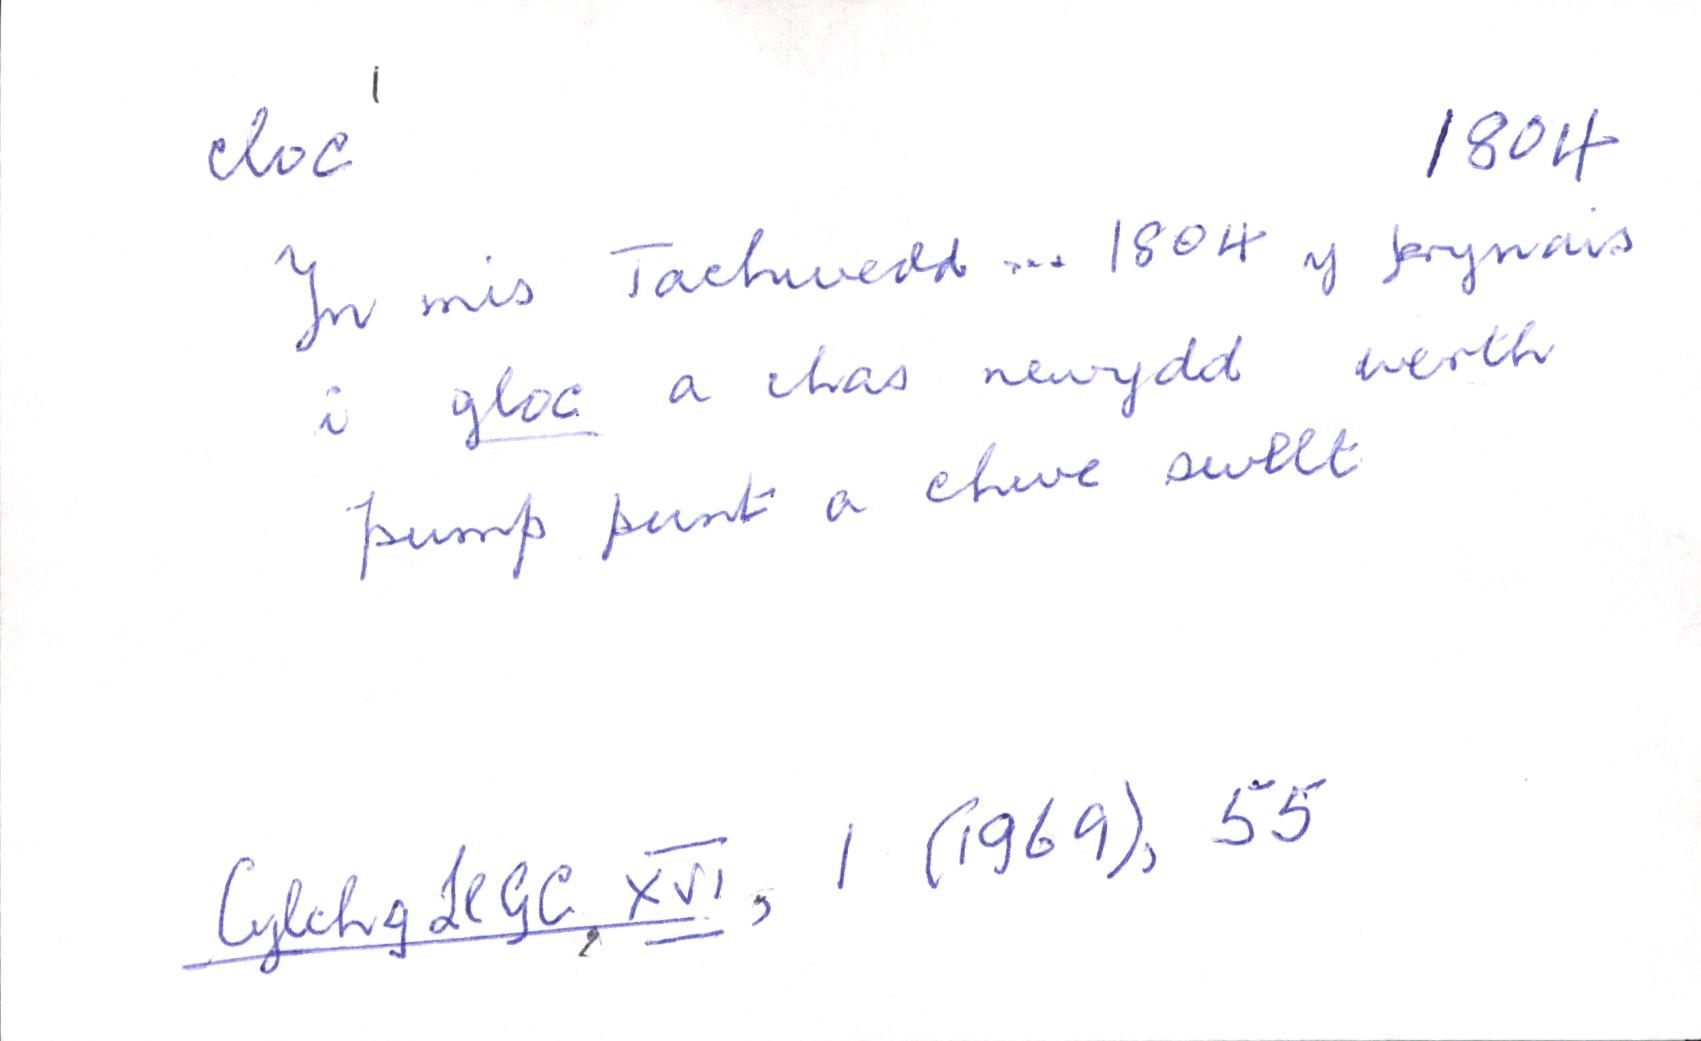 cloc¹ 1804
Yn mis Tachwedd ... 1804 y prynais
i gloc a chas newydd werth
pump punt a chwe swllt
Cylchg LlGC, XVI, 1 (1969), 55